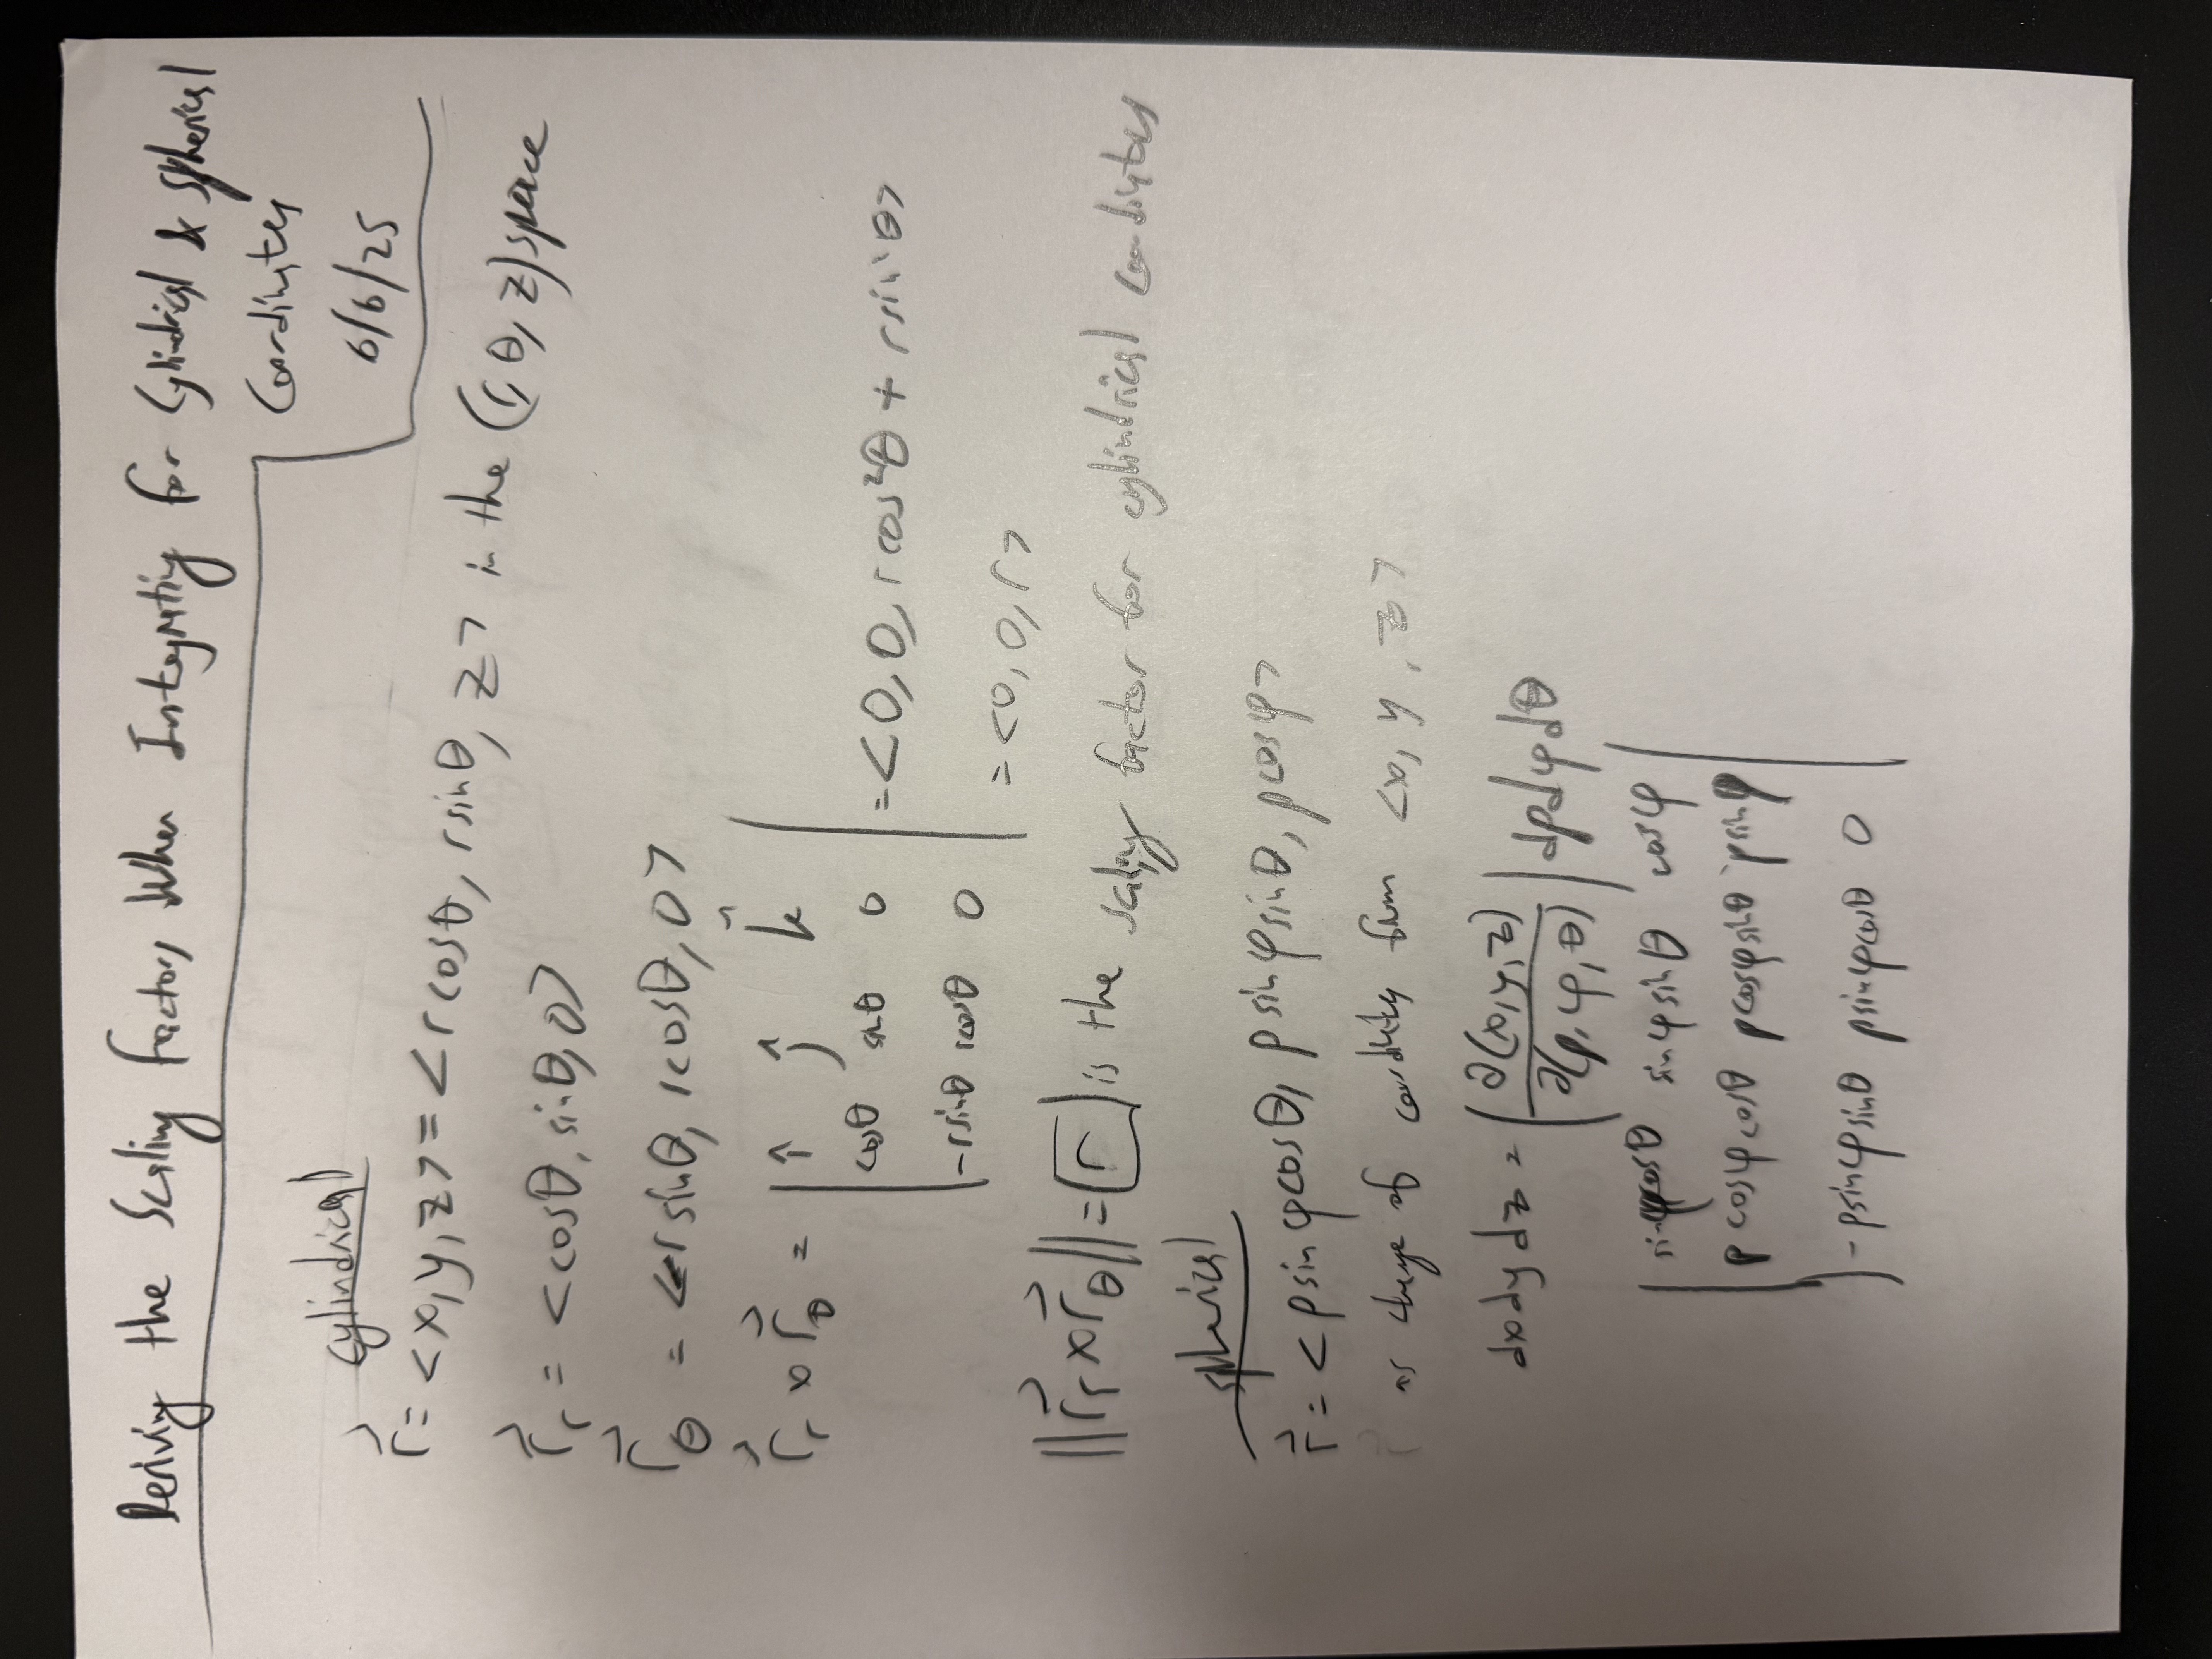 Deriving the Scaling Factors When Integrating for Cylindrical & Spherical
Coordinates
6/6/25
Cylindrical
r⃗ = <x, y, z> = <rcosθ, rsinθ, z> in the (r, θ, z) space
r⃗r = <cosθ, sinθ, 0>
r⃗θ = <-rsinθ, rcosθ, 0>
r⃗r × r⃗θ = | î ĵ k̂
cosθ sinθ 0 | = <0, 0, rcos²θ + rsin²θ>
-rsinθ rcosθ 0 | = <0, 0, r>
||r⃗r × r⃗θ|| = r is the scaling factor for cylindrical coordinates
Spherical
r⃗ = <ρsinφcosθ, ρsinφsinθ, ρcosφ>
as change of coordinates from <x, y, z>
dxdydz = |∂(x,y,z)/∂(ρ,φ,θ)| dρdφdθ
| sinφcosθ sinφsinθ cosφ |
ρcosφcosθ ρcosφsinθ -ρsinφ
-ρsinφsinθ ρsinφcosθ 0